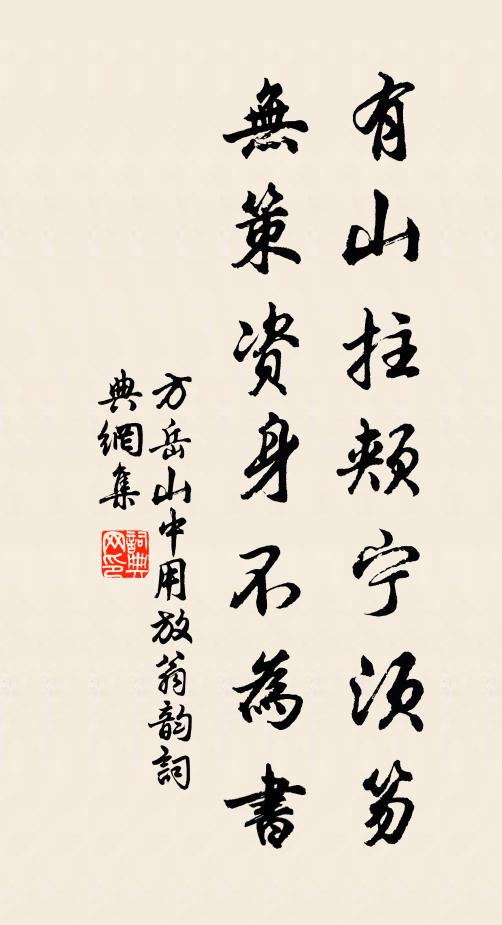 有山拄颊宁须笏
無策資身不為書
方岳山中用放翁韵詞
典網集
詞典
网印